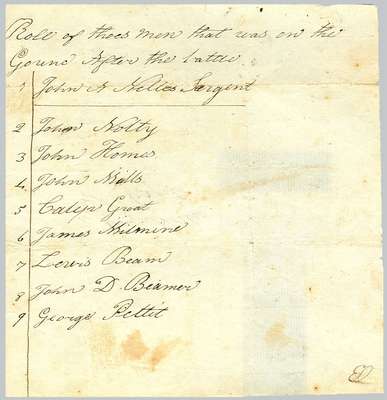 Roll of thoes men that was on the
Gound After the battle.
1 John N Nelles Sargent
2 John Nolty
3 John Homes
4 John Mills
5 Calip Groat
6 James Milmine
7 Lewis Beam
8 John D. Beamer
9 George Pettit